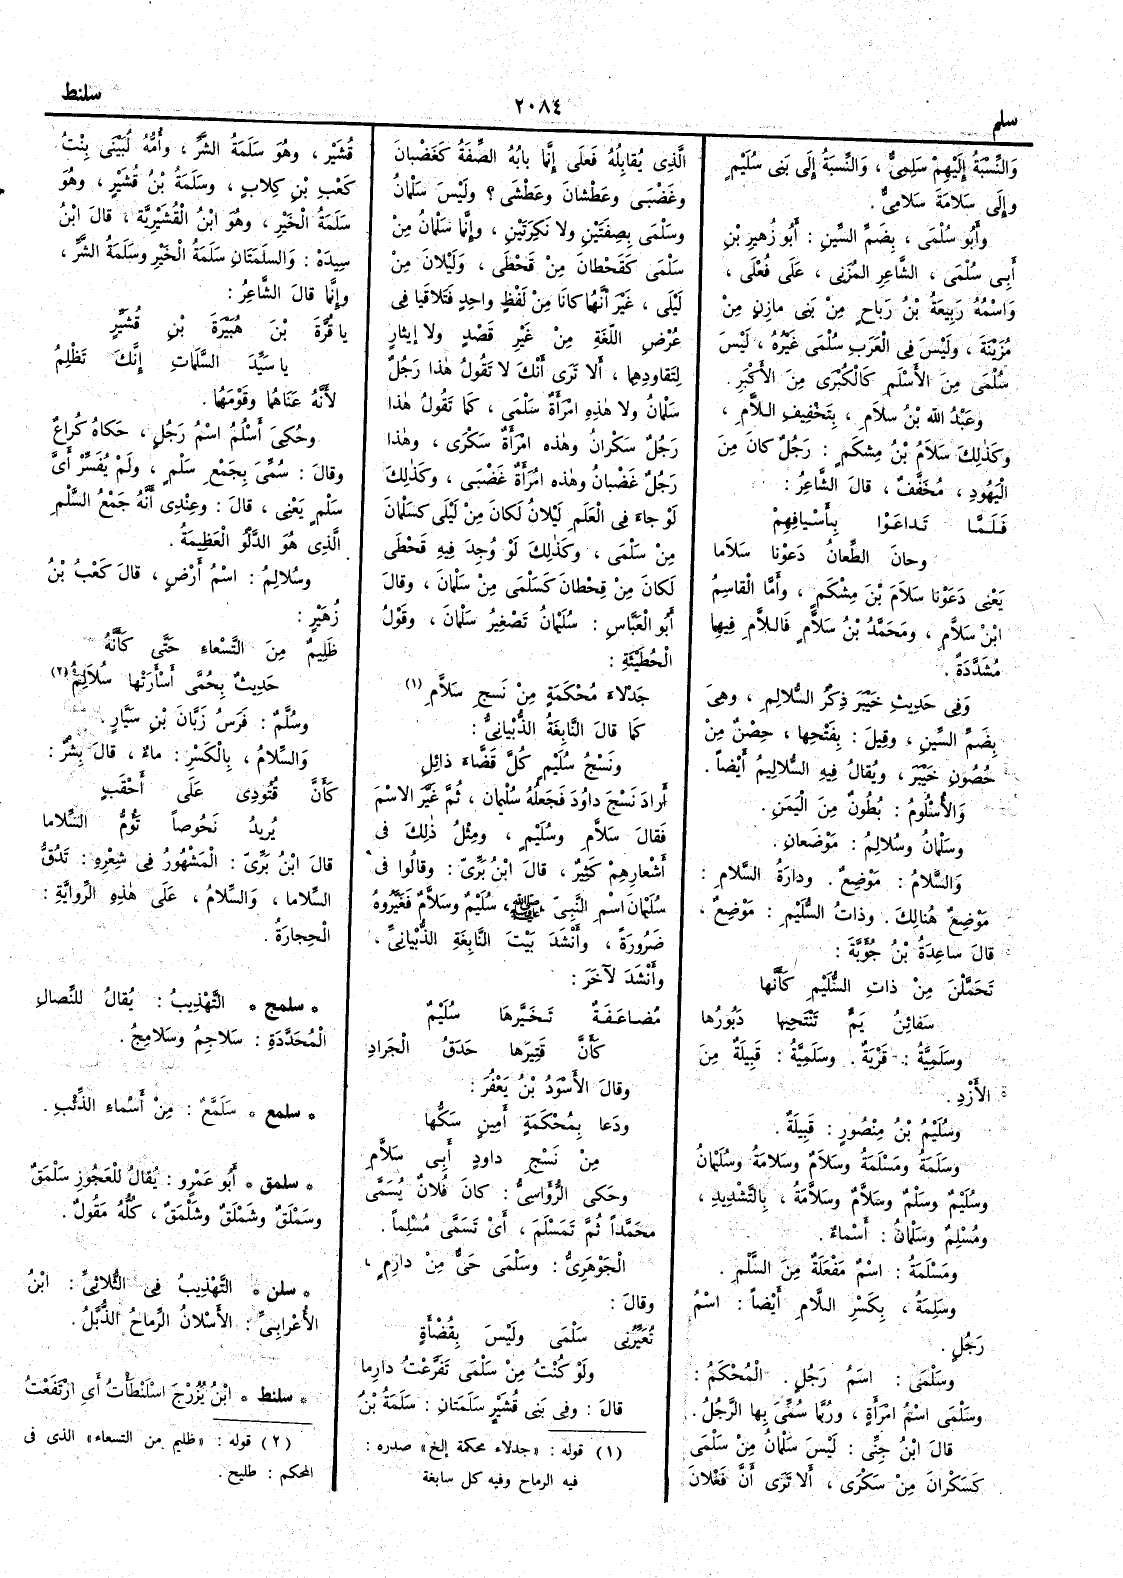 سلم
٢٠٨٤
سلنط
وَالنِّسْبَةُ إِلَيْهِمْ سَلِمِىٌّ ، وَالنِّسْبَةُ إِلَى بَنِى سُلَيْمٍ
وإِلَى سَلامَةَ سَلامِىٌّ .
وأَبُو سُلْمَى ، بِضَمِّ السِّينِ : أَبُو زُهَيْرِ بْنِ
أَبِى سُلْمَى ، الشَّاعِرِ المُزَنِى ، عَلَى فُعْلَى ،
وَاسْمُهُ رَبِيعَةُ بْنُ رَباحٍ مِنْ بَنِى مازِنٍ مِنْ
مُزَيْنَةَ ، ولَيْسَ فِى الْعَرَبِ سُلْمَى غَيْرُهُ ، لَيْسَ
سُلْمَى مِنَ الأَسْلَمِ كَالْكُبْرَى مِنَ الأَكْبَرِ .
وعَبْدُ اللهِ بْنُ سَلامٍ ، بِتَخْفِيفِ اللَّامِ ،
وكَذٰلِكَ سَلَامُ بْنُ مِشْكَمٍ : رَجُلٌ كانَ مِنَ
الْيَهُودِ ، مُخَفَّفٌ ، قالَ الشَّاعِرُ :
فَلَمَّا تَداعَوْا بِأَسْيافِهِمْ
وحانَ الطِّعانُ دَعَوْنا سَلَاما
يَعْنِى دَعَوْنا سَلامَ بْنَ مِشْكَمٍ ، وأَمَّا الْقاسِمُ
ابْنُ سَلَّامٍ ، ومُحَمَّدُ بْنُ سَلَّامٍ فَاللَّامُ فِيها
مُشَدَّدَةٌ .
وَفِى حَدِيثِ خَيْبَرَ ذِكْرُ السُّلالِمِ ، وهِىَ
بِضَمِّ السِّينِ ، وقِيلَ : بِفَتْحِها ، حِصْنٌ مِنْ
حُصُونِ خَيْبَرَ ، ويُقالُ فِيهِ السُّلالِيمُ أَيْضاً .
وَالأُسْلُومُ : بُطُونٌ مِنَ الْيَمَنِ .
وسَلْمانُ وسُلالِمُ : مَوْضِعانِ .
وَالسَّلامُ : مَوْضِعٌ . ودارَةُ السَّلامِ :
مَوْضِعٌ هُنالِكَ . وذاتُ السُّلَيْمِ : مَوْضِعٌ ،
قالَ ساعِدَةُ بْنُ جُؤَيَّةَ :
تَحَمَّلْنَ مِنْ ذاتِ السُّلَيْمِ كَأَنَّها
سَفائِنُ يَمٍّ تَنْتَحِيها دَبُورُها
وسَلَمِيَّةُ : قَرْيَةٌ . وسَلَمِيَّةُ : قَبِيلَةٌ مِنَ
الأَزْدِ .
وسُلَيْمُ بْنُ مَنْصُورٍ : قَبِيلَةٌ .
وسَلَمَةُ ومَسْلَمَةُ وسَلَامٌ وسَلامَةُ وسُلَيْمانُ
وسُلَيْمٌ وسَلْمٌ وسَلَّامٌ وسَلَّامَةُ ، بِالتَّشْدِيدِ ،
ومُسْلِمٌ وسَلْمانُ : أَسْماءٌ .
ومَسْلَمَةُ : اسْمٌ مَفْعَلَةٌ مِنَ السَّلْمِ .
وسَلِمَةُ ، بِكَسْرِ اللَّامِ أَيْضاً : اسْمُ
رَجُلٍ .
وسَلْمَى : اسْمُ رَجُلٍ . الْمُحْكَمُ :
وسَلْمَى اسْمُ امْرَأَةٍ ، ورُبَّما سُمِّىَ بِها الرَّجُلُ .
قالَ ابْنُ جِنِّى : لَيْسَ سَلْمانُ مِنْ سَلْمَى
كَسَكْرانَ مِنْ سَكْرَى ، أَلا تَرَى أَنَّ فَعْلانَ
الَّذِى يُقابِلُهُ فَعْلَى إِنَّما بابُهُ الصِّفَةُ كَغَضْبانَ
وغَضْبَى وعَطْشانَ وعَطْشَى ؟ ولَيْسَ سَلْمانُ
وسَلْمَى بِصِفَتَيْنِ ولا نَكِرَتَيْنِ ، وإِنَّما سَلْمانُ مِنْ
سَلْمَى كَقَحْطانَ مِنْ قَحْطَى ، وَلَيْلانَ مِنْ
لَيْلَى ، غَيْرَ أَنَّهُما كانا مِنْ لَفْظٍ واحِدٍ فَتَلاقَيا فِى
عُرْضِ اللُّغَةِ مِنْ غَيْرِ قَصْدٍ ولا إِيثارٍ
لِتَقاوُدِهِما ، أَلا تَرَى أَنَّكَ لا تَقُولُ هٰذا رَجُلٌ
سَلْمانُ ولا هٰذِهِ امْرَأَةٌ سَلْمَى ، كَما تَقُولُ هٰذا
رَجُلٌ سَكْرانُ وهٰذِهِ امْرَأَةٌ سَكْرَى ، وهٰذا
رَجُلٌ غَضْبانُ وهٰذِهِ امْرَأَةٌ غَضْبَى ، وكَذٰلِكَ
لَوْ جاءَ فِى الْعَلَمِ لَيْلانُ لَكانَ مِنْ لَيْلَى كَسَلْمانَ
مِنْ سَلْمَى ، وكَذٰلِكَ لَوْ وُجِدَ فِيهِ قَحْطَى
لَكانَ مِنْ قَحْطانَ كَسَلْمَى مِنْ سَلْمانَ ، وقالَ
أَبُو الْعَبَّاسِ : سُلَيْمانُ تَصْغِيرُ سَلْمانَ ، وقَوْلُ
الْحُطَيْئَةِ :
جَدْلاءَ مُحْكَمَةٍ مِنْ نَسْجِ سَلَّامِ (١)
كَما قالَ النَّابِغَةُ الذُّبْيانِىُّ :
ونَسْجُ سُلَيْمٍ كُلَّ قَضَّاءَ ذائِلِ
أَرادَ نَسْجَ داوُدَ فَجَعَلَهُ سُلَيْمانَ ، ثُمَّ غَيَّرَ الاسْمَ
فَقالَ سَلَّامٍ وسُلَيْمٍ ، ومِثْلُ ذٰلِكَ فِى
أَشْعارِهِمْ كَثِيرٌ ، قالَ ابْنُ بَرِّىّ : وقالُوا فِى
سُلَيْمانَ اسْمِ النَّبِىِّ ، ﷺ ، سُلَيْمٌ وسَلَّامٌ فَغَيَّرُوهُ
ضَرُورَةً ، وأَنْشَدَ بَيْتَ النَّابِغَةِ الذُّبْيانِىِّ ،
وأَنْشَدَ لآخَرَ :
مُضاعَفَةٌ تَخَيَّرَها سُلَيْمٌ
كَأَنَّ قَتِيرَها حَدَقُ الْجَرادِ
وقالَ الأَسْوَدُ بْنُ يَعْفُرَ :
ودَعا بِمُحْكَمَةٍ أَمِينٍ سَكُّها
مِنْ نَسْجِ داودٍ أَبِى سَلَّامِ
وحَكَى الرُّؤَاسِىُّ : كانَ فُلانٌ يُسَمَّى
مُحَمَّداً ثُمَّ تَمَسْلَمَ ، أَىْ تَسَمَّى مُسْلِماً .
الْجَوْهَرِىُّ : وسَلْمَى حَىٌّ مِنْ دارِمٍ ،
وقالَ :
تُعَيِّرُنِى سَلْمَى ولَيْسَ بِقُضْأَةٍ
ولَوْ كُنْتُ مِنْ سَلْمَى تَفَرَّعْتُ دارِما
قالَ : وفِى بَنِى قُشَيْرٍ سَلَمَتانِ : سَلَمَةُ بْنُ
(١) قوله : «جدلاء محكمة إلخ» صدره :
فيه الرماح وفيه كل سابغة
قُشَيْرٍ ، وهُوَ سَلَمَةُ الشَّرِّ ، وأُمُّهُ لُبَيْنَى بِنْتُ
كَعْبِ بْنِ كِلابٍ ، وسَلَمَةُ بْنُ قُشَيْرٍ ، وهُوَ
سَلَمَةُ الْخَيْرِ ، وهُوَ ابْنُ الْقُشَيْرِيَّةِ ، قالَ ابْنُ
سِيدَهْ : وَالسَّلَمَتانِ سَلَمَةُ الْخَيْرِ وسَلَمَةُ الشَّرِّ ،
وإِنَّما قالَ الشَّاعِرُ :
يا قُرَّةَ بْنَ هُبَيْرَةَ بْنِ قُشَيِّرٍ
يا سَيِّدَ السَّلَماتِ إِنَّكَ تَظْلِمُ
لأَنَّهُ عَناهُما وقَوْمَهُما .
وحُكِىَ أَسْلُمُ اسْمُ رَجُلٍ ، حَكاهُ كُراعٌ
وقالَ : سُمِّىَ بِجَمْعِ سَلْمٍ ، ولَمْ يُفَسِّرْ أَىَّ
سَلْمٍ يَعْنِى ، قالَ : وعِنْدِى أَنَّهُ جَمْعُ السَّلْمِ
الَّذِى هُوَ الدَّلْوُ الْعَظِيمَةُ .
وسُلالِمُ : اسْمُ أَرْضٍ ، قالَ كَعْبُ بْنُ
زُهَيْرٍ :
ظَلِيمٌ مِنَ التَّسْعاءِ حَتَّى كَأَنَّهُ
حَدِيثٌ بِحُمَّى أَسْأَرَتْها سُلالِمُ (٢)
وسُلَّمٌ : فَرَسُ زَبَّانَ بْنِ سَيَّارٍ .
وَالسِّلامُ ، بِالْكَسْرِ : ماءٌ ، قالَ بِشْرٌ :
كَأَنَّ قُتُودِى عَلَى أَحْقَبٍ
يُرِيدُ نَحُوصاً تَؤُمُّ السِّلاما
قالَ ابْنُ بَرِّىّ : الْمَشْهُورُ فِى شِعْرِهِ : تَدُقُّ
السِّلاما ، وَالسِّلامُ ، عَلَى هٰذِهِ الرِّوايَةِ :
الْحِجارَةُ .
* سلمج * التَّهْذِيبُ : يُقالُ لِلنِّصالِ
الْمُحَدَّدَةِ : سَلاجِمُ وسَلامِجُ .
* سلمع * سَلَمَّعٌ : مِنْ أَسْماءِ الذِّئْبِ .
* سلمق * أَبُو عَمْرٍو : يُقالُ لِلْعَجُوزِ سَلْمَقٌ
وسَمْلَقٌ وشَمْلَقٌ وشَلْمَقٌ ، كُلُّهُ مَقُولٌ .
* سلن * التَّهْذِيبُ فِى الثُّلاثِىِّ : ابْنُ
الأَعْرابِىِّ : الأَسْلانُ الرِّماحُ الذُّبَّلُ .
* سلنط * ابْنُ بُزُرْجَ اسْلَنْطَأْتُ أَىِ ارْتَفَعْتُ
(٢) قوله : «ظليم من التسعاء» الذى فى
المحكم : طليح .